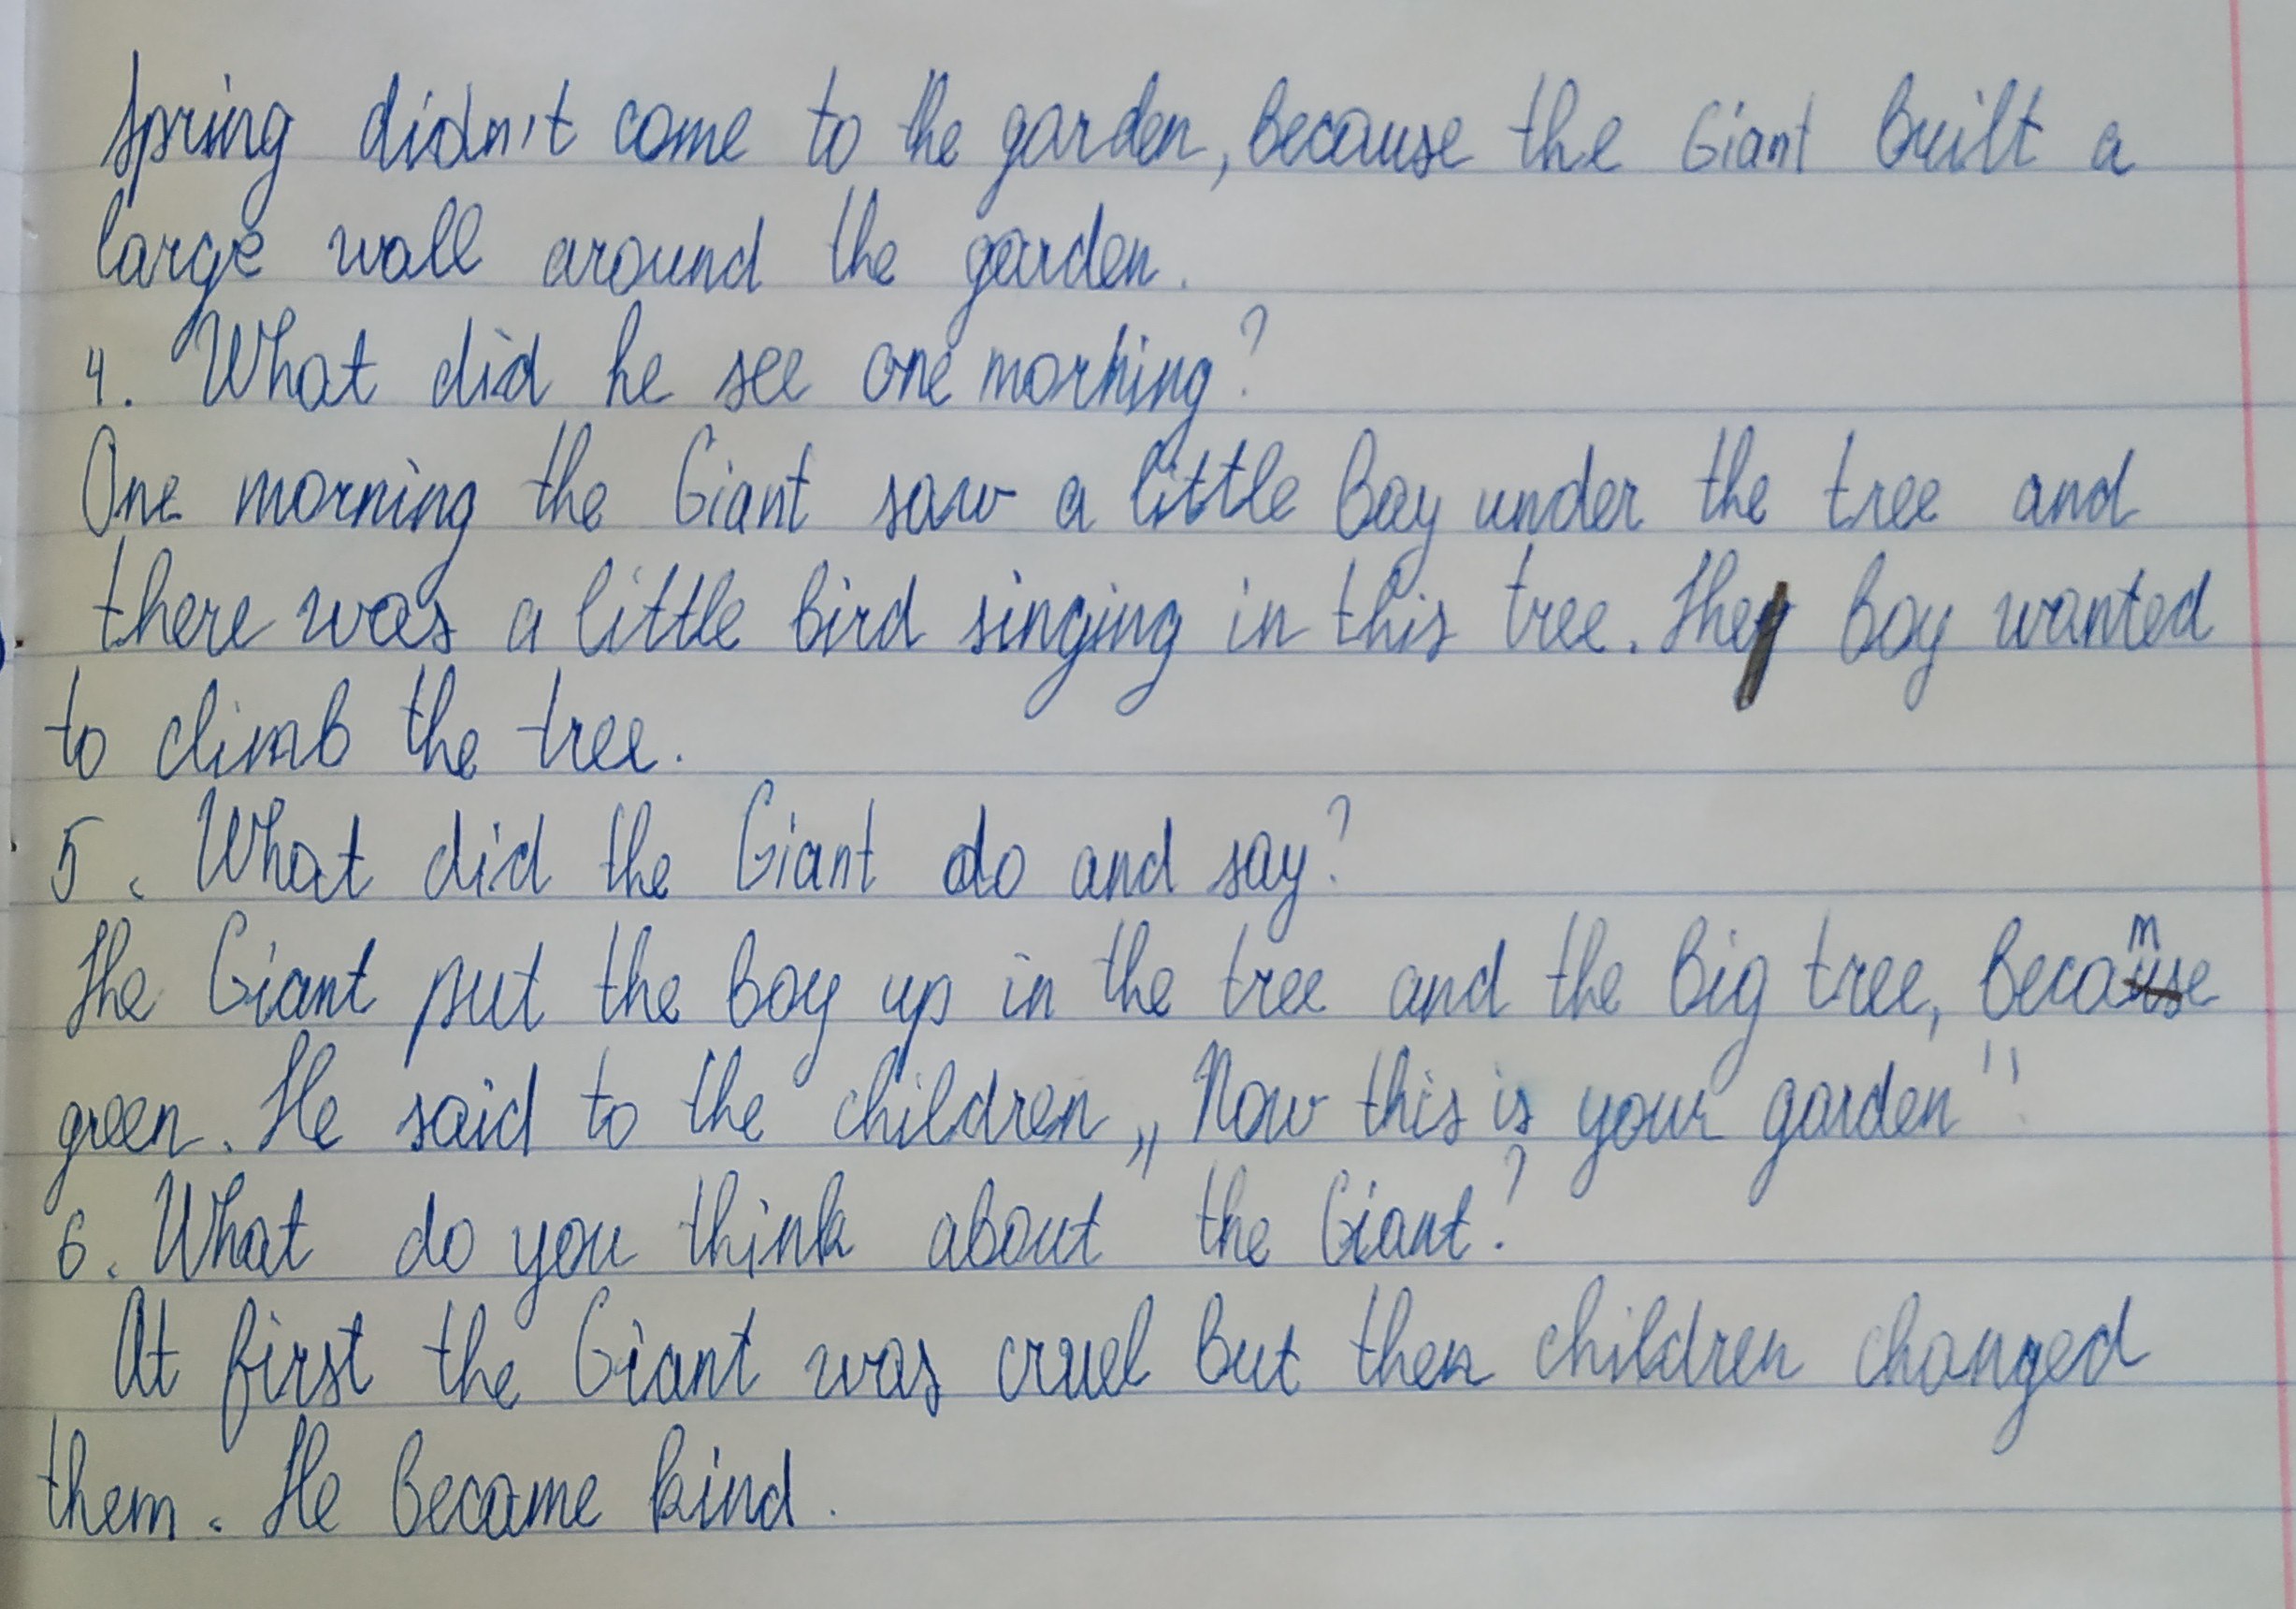 Spring didn't come to the garden, because the Giant built a
large wall around the garden.
4. What did he see one morning?
One morning the Giant saw a little boy under the tree and
there was a little bird singing in this tree. The boy wanted
to climb the tree.
5. What did the Giant do and say?
The Giant put the boy up in the tree and the big tree, became
green. He said to the children „Now this is your garden".
6. What do you think about the Giant?
At first the Giant was cruel but then children changed
them. He became kind.